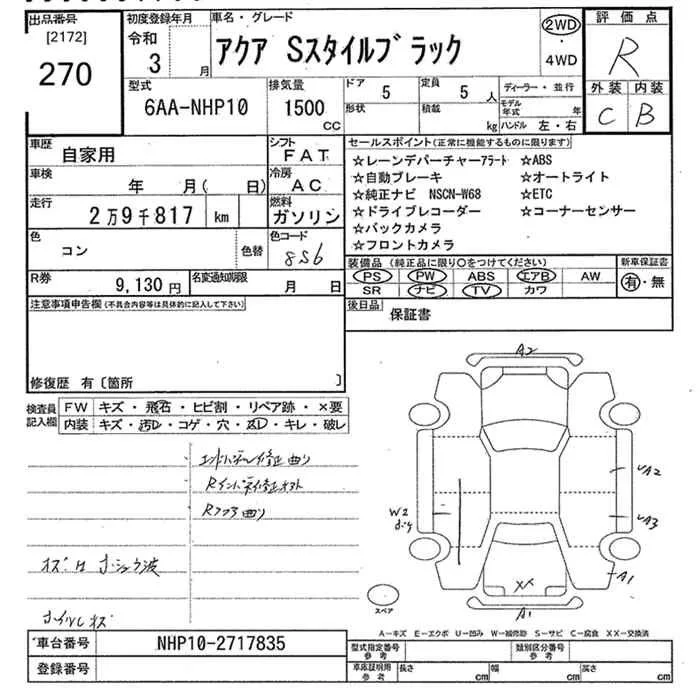 出品番号
[2172]
270
初度登録年月
令和
3 月
車名・グレード
アクア Sスタイルブラック
2WD
・
4WD
評価点
R
外装 内装
C B
型式
6AA-NHP10
排気量
1500
CC
ドア 5
形状
定員 5 人
積載 kg
ディーラー・並行
モデル年式 年
ハンドル 左・右
車歴 自家用
シフト FAT
車検 年 月( 日)
冷房 AC
走行 2万9千817 km
燃料 ガソリン
色 コン
色替
色コード 8S6
R券 9,130円
名変通知期限 月 日
セールスポイント(正常に機能するものに限ります)
☆レーンデパーチャーアラート ☆ABS
☆自動ブレーキ ☆オートライト
☆純正ナビ NSCN-W68 ☆ETC
☆ドライブレコーダー ☆コーナーセンサー
☆バックカメラ
☆フロントカメラ
装備品(純正品に限り○をつけてください)
PS PW ABS エアB AW
SR ナビ TV カワ
新車保証書
有・無
後日品 保証書
注意事項申告欄(不具合内容等は具体的に記入して下さい)
修復歴 有〔箇所 〕
検査員記入欄
FW キズ・飛石・ヒビ割・リペア跡・×要
内装 キズ・汚レ・コゲ・穴・凹レ・キレ・破レ
Rフフラ曲り
ホイルキズ
A2
A2
A3
W2
A1
XX
A1
スペア
A-キズ E-エクボ U-凹み W-補修跡 S-サビ C-腐食 XX-交換済
車台番号 NHP10-2717835
登録番号
型式指定番号 参考
類別区分番号 参考
車庫証明用 参考
長さ cm 幅 cm 高さ cm